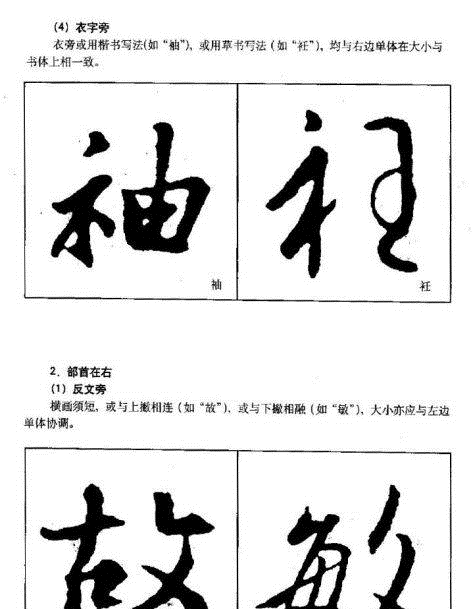 (4) 衣字旁
衣旁或用楷书写法(如“袖”)，或用草书写法(如“衽”)，均与右边单体在大小与
书体上相一致。
袖 衽
袖 衽
2. 部首在右
(1) 反文旁
横画须短，或与上撇相连(如“故”)、或与下撇相融(如“敏”)，大小亦应与左边
单体协调。
故 敏